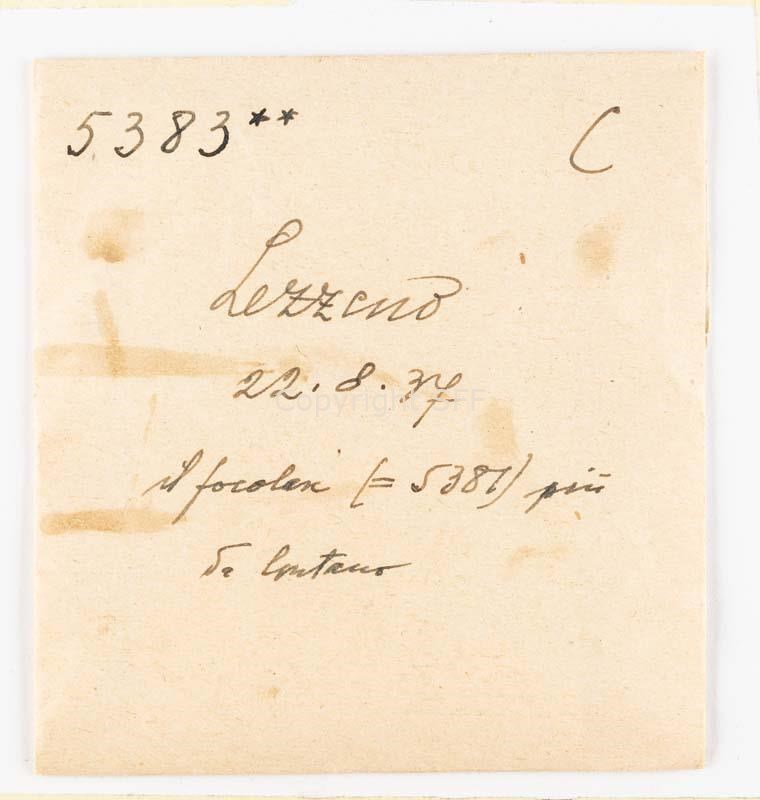 5383** C
Lezzeno
22.8.37
Copyright SFF
il focolare (= 5381) più
da lontano